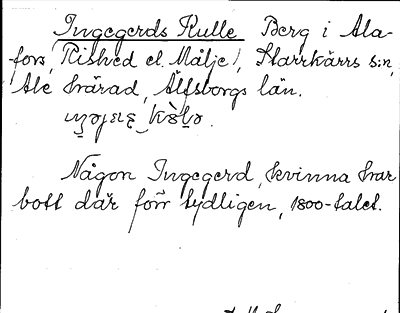 Ingegerds Kulle Berg i Ala-
fors, Starrkärrs s:n,
Ale härad, Älfsborgs län.
Någon Ingegerd, kvinna har
bott där förr tydligen, 1800-talet.